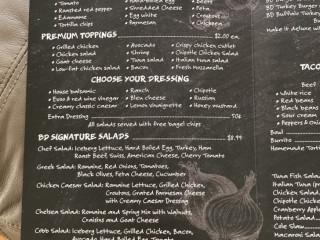 • Tomato
• Roasted red pepper
• Edamame
• Tortilla chips
• Shredded Cheese
• Egg white
• Parmesan
• Feta
• Croutons
BD Burger Style
BD Buffalo Turkey
PREMIUM TOPPINGS $2.00 ea.
• Grilled chicken
• Chicken salad
• Goat cheese
• Low-fat chicken salad
• Avocado
• Shrimp
• Tuna salad
• Bacon
• Crispy chicken cutlet
• Chipotle Chicken Salad
• Italian tuna salad
• Fresh mozzarella
CHOOSE YOUR DRESSING
• House balsamic
• Evoo & red wine vinegar
• Creamy classic caesar
• Ranch
• Bleu cheese
• Lemon vinaigrette
• Chipotle
• Russian
• Honey mustard
Extra Dressing 50¢
All salads served with free bagel chips
BD SIGNATURE SALADS $8.99
Chef Salad: Iceberg Lettuce, Hard Boiled Egg, Turkey, Ham
Roast Beef, Swiss, American Cheese, Cherry Tomato
Greek Salad: Romaine, Red Onions, Tomatoes,
Black Olives, Feta Cheese, Cucumber
Chicken Caesar Salad: Romaine Lettuce, Grilled Chicken,
Croutons, Grated Parmesan Cheese
with Creamy Caesar Dressing
Chelsea Salad: Romaine and Spring Mix with Walnuts,
Craisins and Goat Cheese
Cobb Salad: Iceberg Lettuce, Grilled Chicken, Bacon,
Avocado Hard Boiled Egg, Tomato
TACO
Beef
• White rice
• Red beans
• Black beans
• Sour cream
• Peppers &
Bowl
Burrito
Homemade Tortilla
Tuna Fish Salad
Italian Tuna
Chicken Salad
Chipotle Chicken
Cranberry
Potato Salad
Cole Slaw
Macaroni Salad